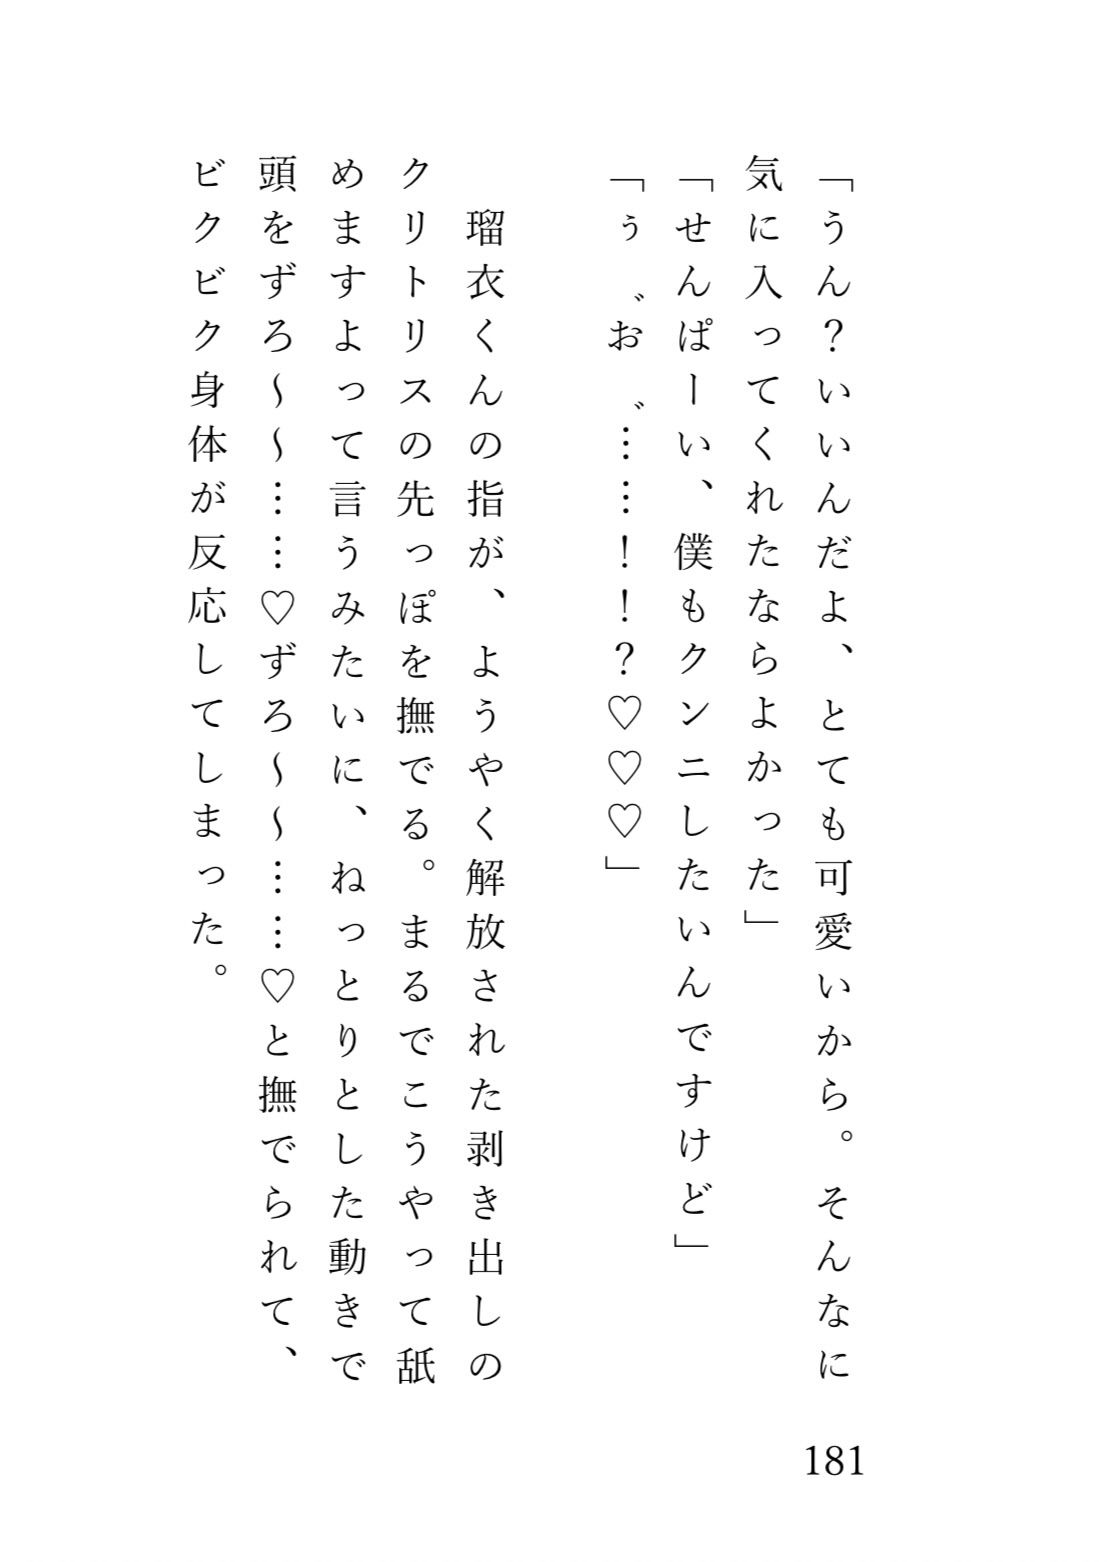 「うん？いいんだよ、とても可愛いから。そんなに
気に入ってくれたならよかった」
「せんぱーい、僕もクンニしたいんですけど」
「ぅ゛お゛……！！？♡♡♡」
　瑠衣くんの指が、ようやく解放された剥き出しの
クリトリスの先っぽを撫でる。まるでこうやって舐
めますよって言うみたいに、ねっとりとした動きで
頭をずろ～～……♡ずろ～～……♡と撫でられて、
ビクビク身体が反応してしまった。
181